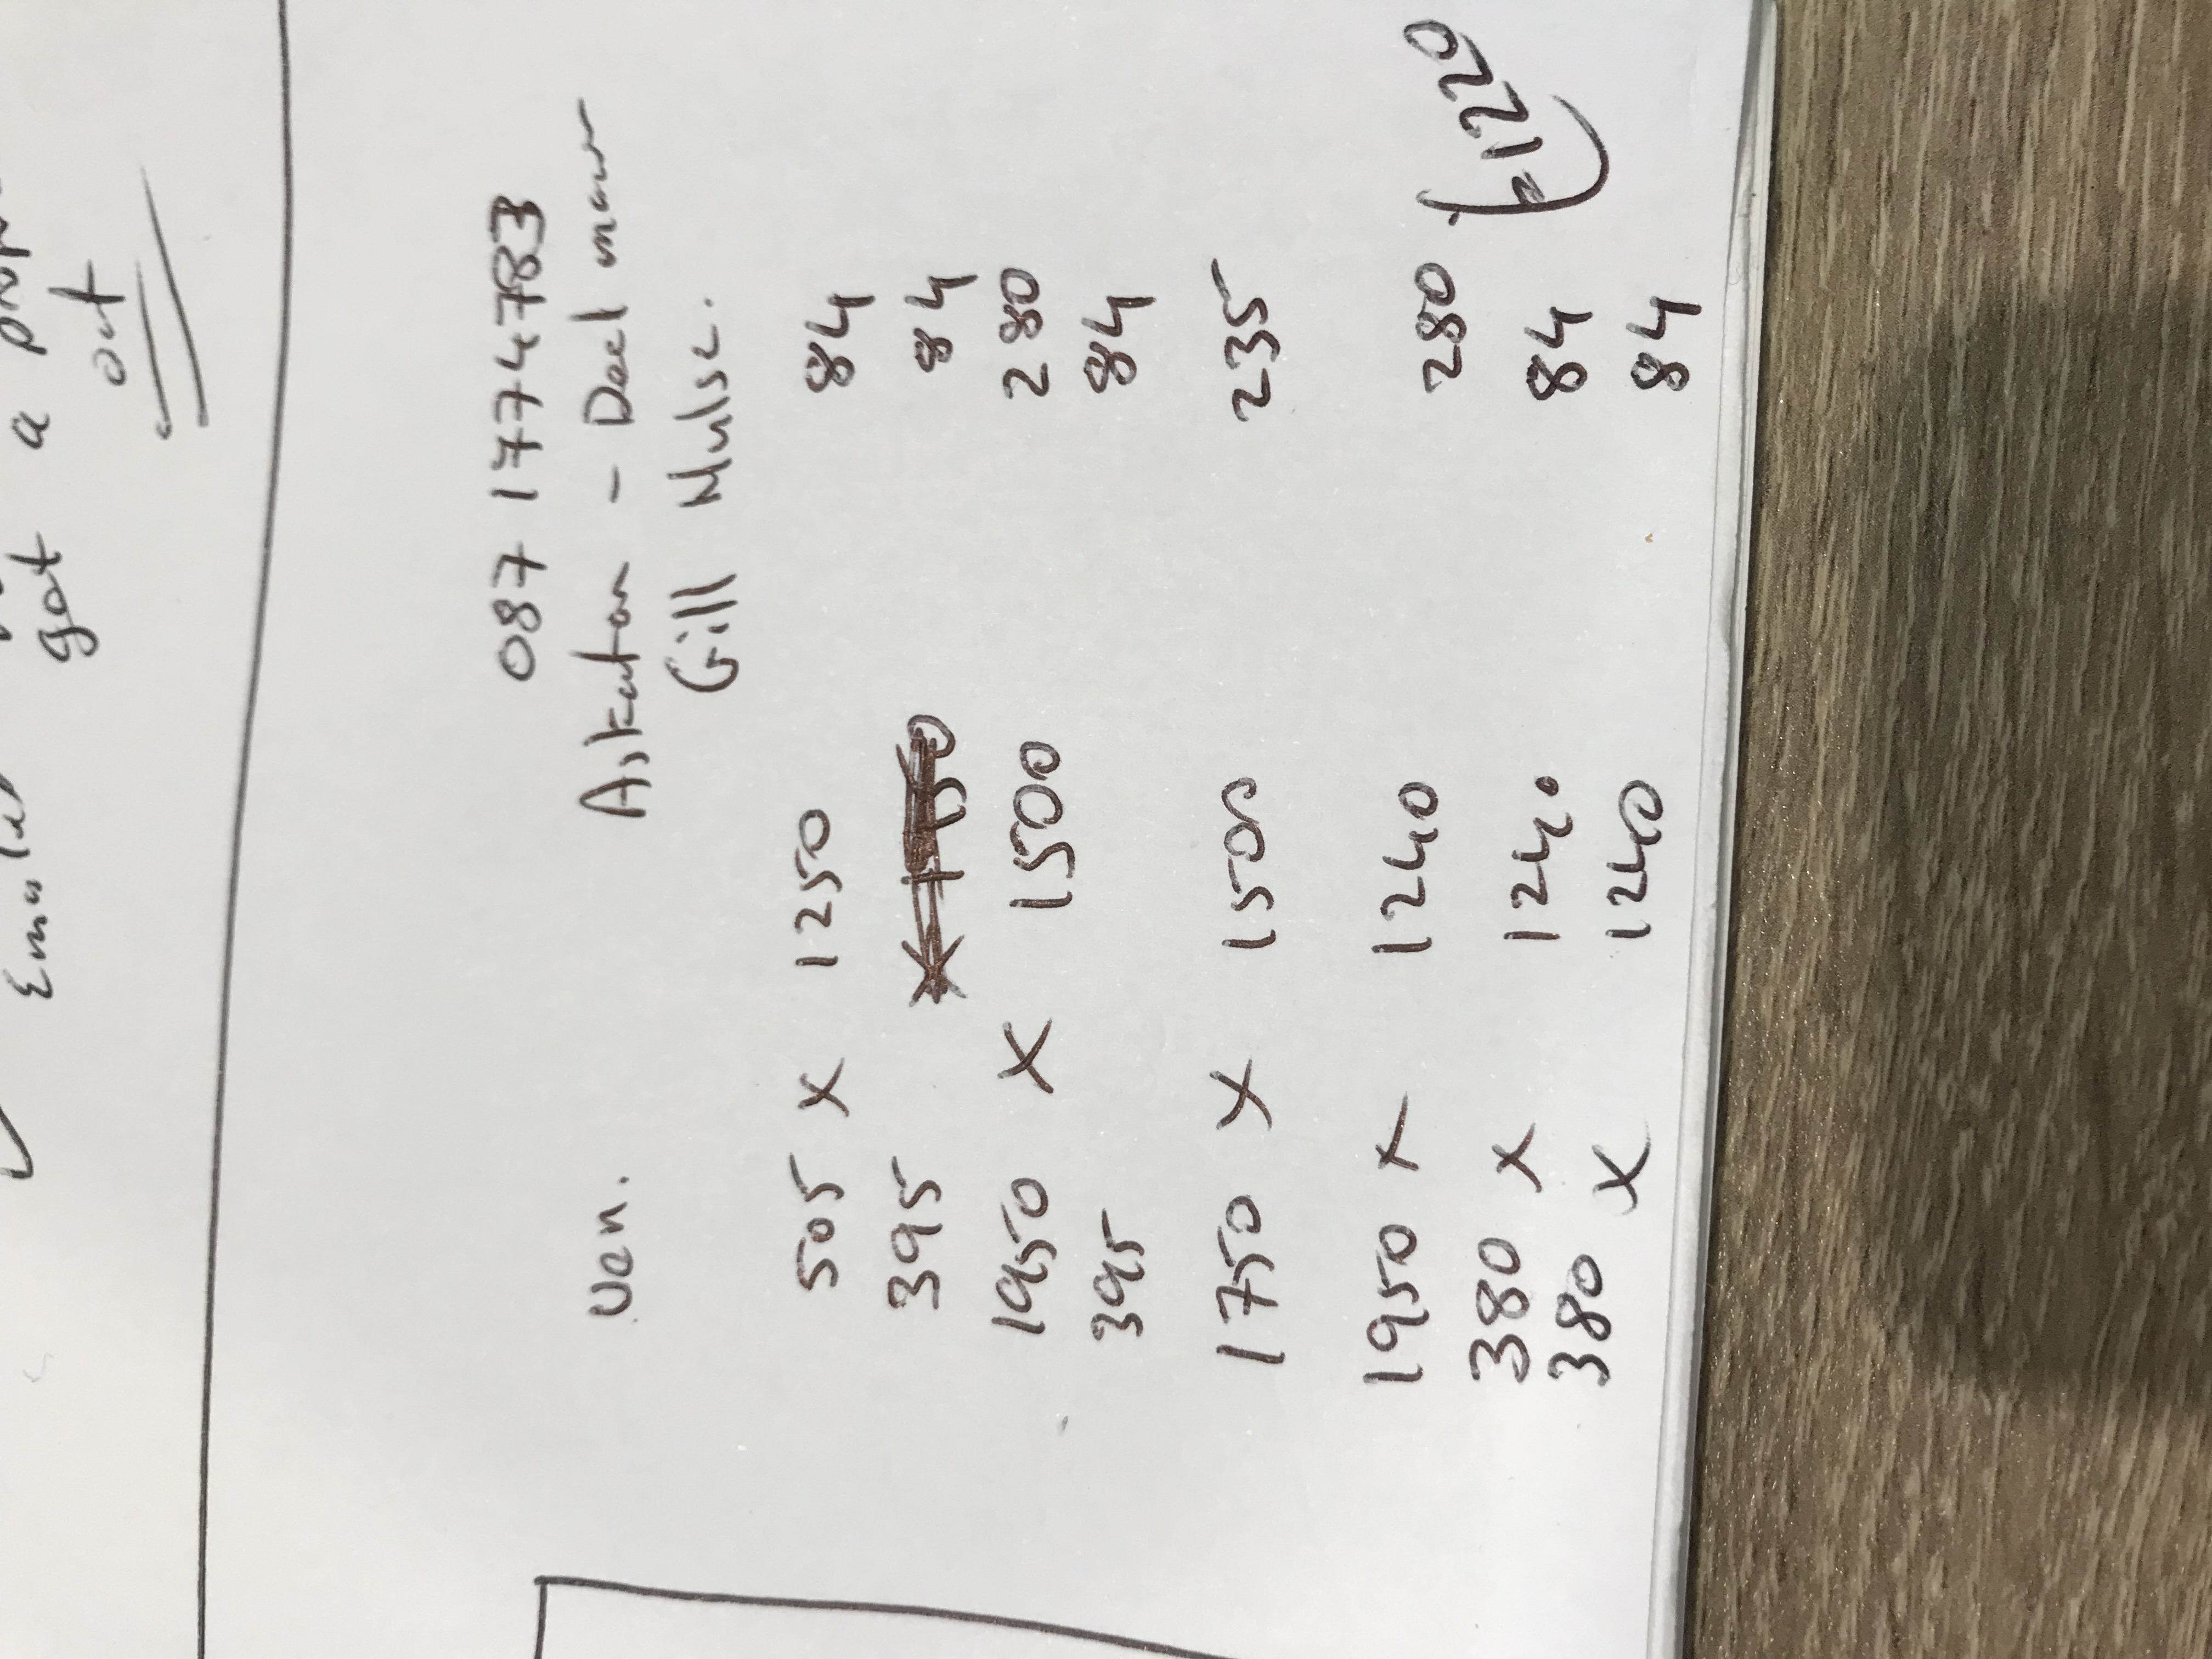 Emailed
got a
out
087 1774783
Ven. Askeaton - Deel manor
Gill Hulse.
505 x 1250 84
395 84
1950 x 1500 280
395 84
1750 x 1500 235
1950 x 1240 280
= 1220
380 x 1240 84
380 x 1240 84